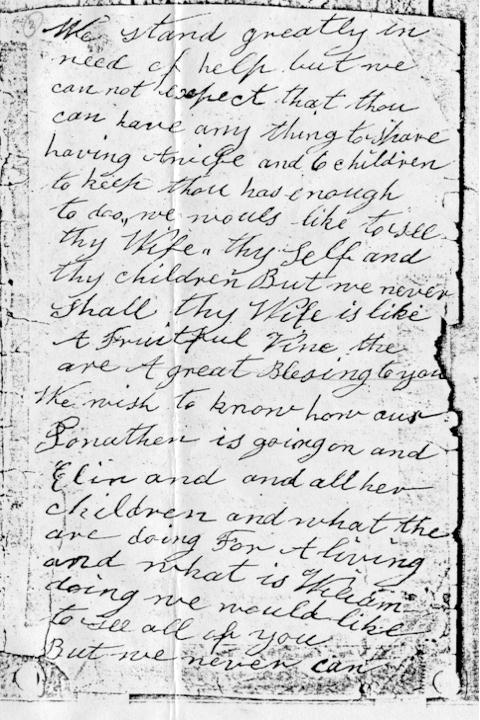 2
We stand greatly in
need of help but we
can not expect that thou
can have any thing to Share
having A wife and 6 children
to keep thou has enough
to doo, we woues like to see
thy Wife, thy Self and
thy children But we never
Shall thy Wife is like
A Fruitful Vine the
are A great Blesing to you
We wish to know how our
Jonathen is going on and
Elin and and all her
children and what the
are doing For A living
and what is William
doing we would like
to See all of you
But we never can